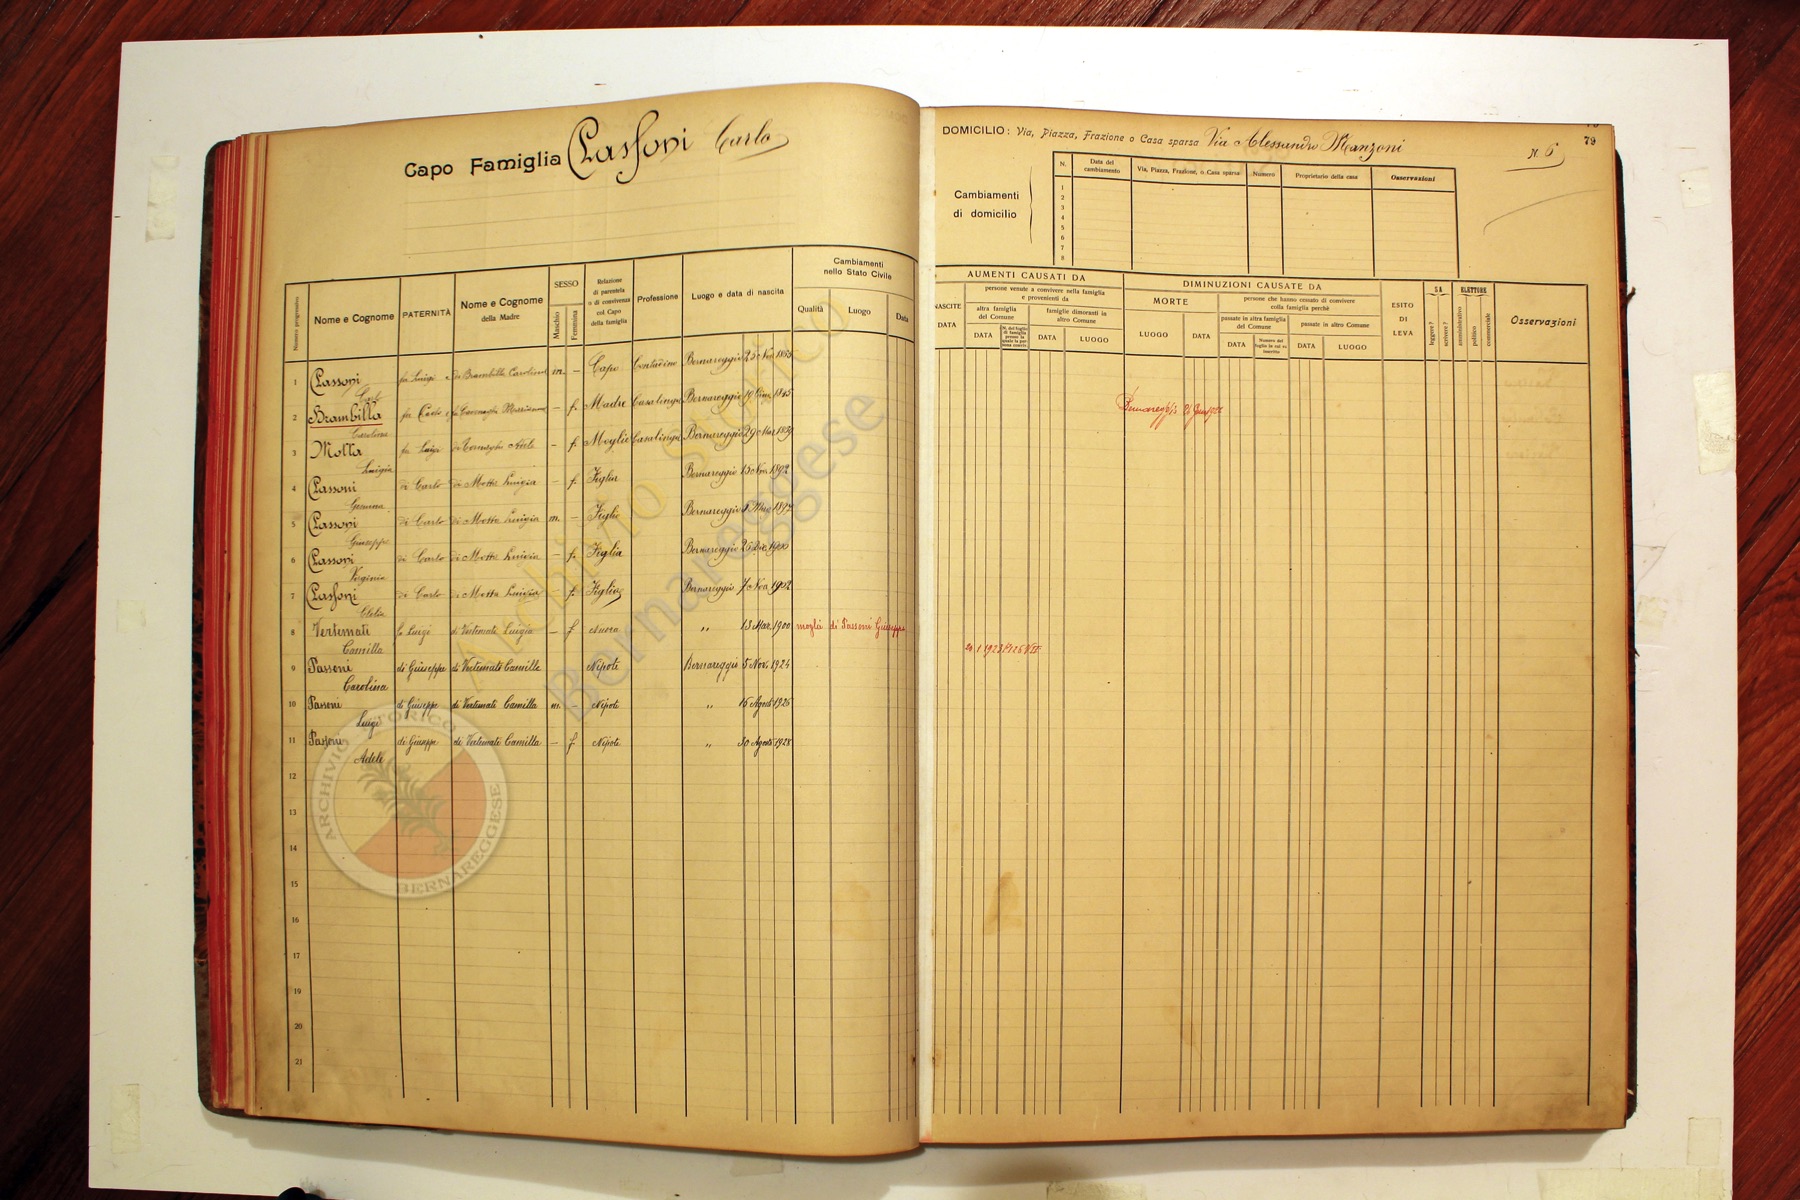 Capo Famiglia Passoni Carlo
Numero progressivo
Nome e Cognome
PATERNITÀ
Nome e Cognome
della Madre
SESSO
Maschio
Femmina
Relazione
di parentela
o di convivenza
col Capo
della famiglia
Professione
Luogo e data di nascita
Cambiamenti
nello Stato Civile
Qualità
Luogo
Data
1 Passoni fu Luigi di Brambilla Carolina m. – Capo Contadino Bernareggio
Carlo
2 Brambilla fu Carlo – f. Madre Casalinga Bernareggio 19 1845
Carolina
3 Motta fu Luigi Adele – f. Moglie Casalinga Bernareggio 29 Mar
Luigia
4 Passoni di Carlo di Motta Luigia – f. Figlia Bernareggio 15 Nov. 1892
Gesuina
5 Passoni di Carlo di Motta Luigia m. – Figlio Bernareggio
Giuseppe
6 Passoni di Carlo di Motta Luigia – f. Figlia Bernareggio 25 Dic. 1900
Virginia
7 Passoni di Carlo di Motta Luigia – f. Figlia Bernareggio 7 Nov. 1902
Clelia
8 Vertemati fu Luigi di Vertemati Luigia – f Nuora " 13 Mar. 1900 moglie di Passoni Giuseppe
Camilla
9 Passoni di Giuseppe di Vertemati Camilla Nipote Bernareggio 5 Nov. 1924
Carolina
10 Passoni di Giuseppe di Vertemati Camilla m. - Nipote " 15 Agosto 1926
Luigi
11 Passoni di Giuseppe di Vertemati Camilla – f Nipote " 30 Agosto 1928
Adele
12
13
14
15
16
17
18
19
20
21
DOMICILIO: Via, Piazza, Frazione o Casa sparsa Via Alessandro Manzoni N. 6
79
Cambiamenti
di domicilio
N.
Data del
cambiamento
Via, Piazza, Frazione, o Casa sparsa
Numero
Proprietario della casa
Osservazioni
1
2
3
4
5
6
7
8
AUMENTI CAUSATI DA
NASCITE
DATA
persone venute a convivere nella famiglia
e provenienti da
altra famiglia
del Comune
DATA
famiglie dimoranti in
altro Comune
DATA
LUOGO
DIMINUZIONI CAUSATE DA
MORTE
LUOGO
DATA
persone che hanno cessato di convivere
colla famiglia perchè
passate in altra famiglia
del Comune
DATA
Numero del
foglio in cui es.
inscritto
passate in altro Comune
DATA
LUOGO
ESITO
DI
LEVA
SA
leggere?
scrivere?
ELETTORE
amministrativo
politico
commerciale
Osservazioni
Bernareggio
Archivio Storico
Bernareggese
ARCHIVIO STORICO
BERNAREGGESE